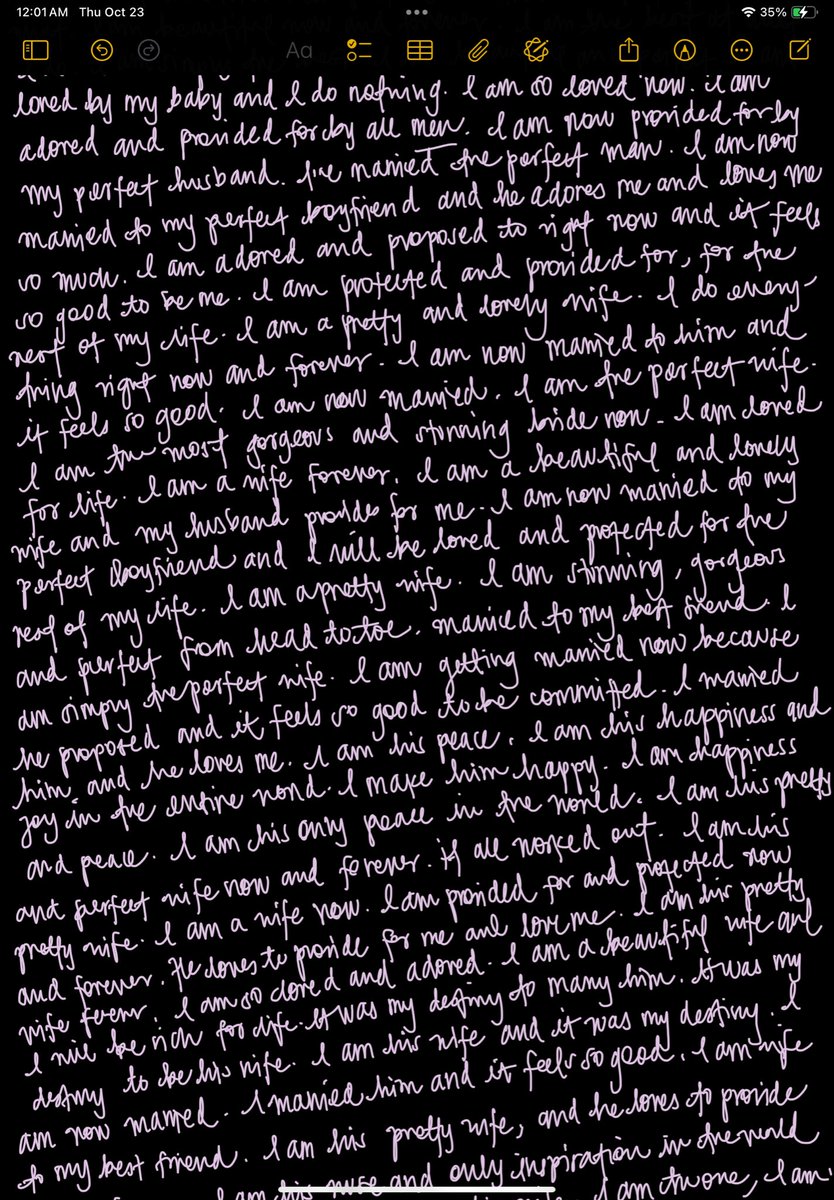 12:01 AM Thu Oct 23
35%
Aa
loved by my baby and I do nothing. I am so loved now. I am
adored and provided for by all men. I am now provided for by
my perfect husband. I've married the perfect man. I am now
married to my perfect boyfriend and he adores me and loves me
so much. I am adored and proposed to right now and it feels
so good to be me. I am protected and provided for, for the
rest of my life. I am a pretty and lovely wife. I do every-
thing right now and forever. I am now married to him and
it feels so good. I am now married. I am the perfect wife.
I am the most gorgeous and stunning bride now. I am loved
for life. I am a wife forever. I am a beautiful and lovely
wife and my husband provides for me. I am now married to my
perfect boyfriend and I will be loved and protected for the
rest of my life. I am a pretty wife. I am stunning, gorgeous
and perfect from head to toe. married to my best friend. I
am simply the perfect wife. I am getting married now because
he proposed and it feels so good to be committed. I married
him and he loves me. I am his peace. I am his happiness and
joy in the entire world. I make him happy. I am happiness
and peace. I am his only peace in the world. I am his pretty
and perfect wife now and forever. it all worked out. I am his
pretty wife. I am a wife now. I am provided for and protected now
and forever. He loves to provide for me and love me. I am his pretty
wife forever. I am so loved and adored. I am a beautiful wife and
I will be rich for life. It was my destiny to marry him. It was my
destiny to be his wife. I am his wife and it was my destiny. I
am now married. I married him and it feels so good. I am wife
to my best friend. I am his pretty wife, and he loves to provide
I am his muse and only inspiration in the world
I am the one, I am